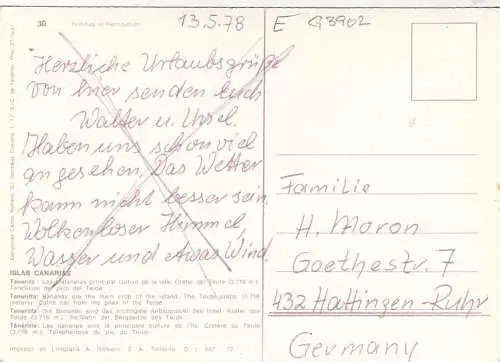 30
13.5.78
E G3902
Herzliche Urlaubsgrüße
von hier senden Euch
Walter u. Ursel.
Haben uns schon viel
angesehen. Das Wetter
kann nicht besser sein.
Wolkenloser Himmel,
Wasser und etwas Wind.
Familie
H. Moron
Goethestr. 7
432 Hattingen-Ruhr
Germany
ISLAS CANARIAS
Tenerife: Las plataneras principal cultivo de la isla. Cráter del Teide (3.718 m.)
Teleférico del pico del Teide
Tenerife: Bananas are the main crop of the island. The Teide crater (3.718
meters). Cable car from the peak of the Teide.
Teneriffa: Die Bananen sind das wichtigste Anbauprodukt der Insel. Krater des
Teide (3.718 m.). Seilbahn des Berggipfels des Teide.
Ténériffe: Las bananiers sont la principale culture de l'île. Cratère du Teide
(3.718 m.). Téléphérique du pic du Teide.